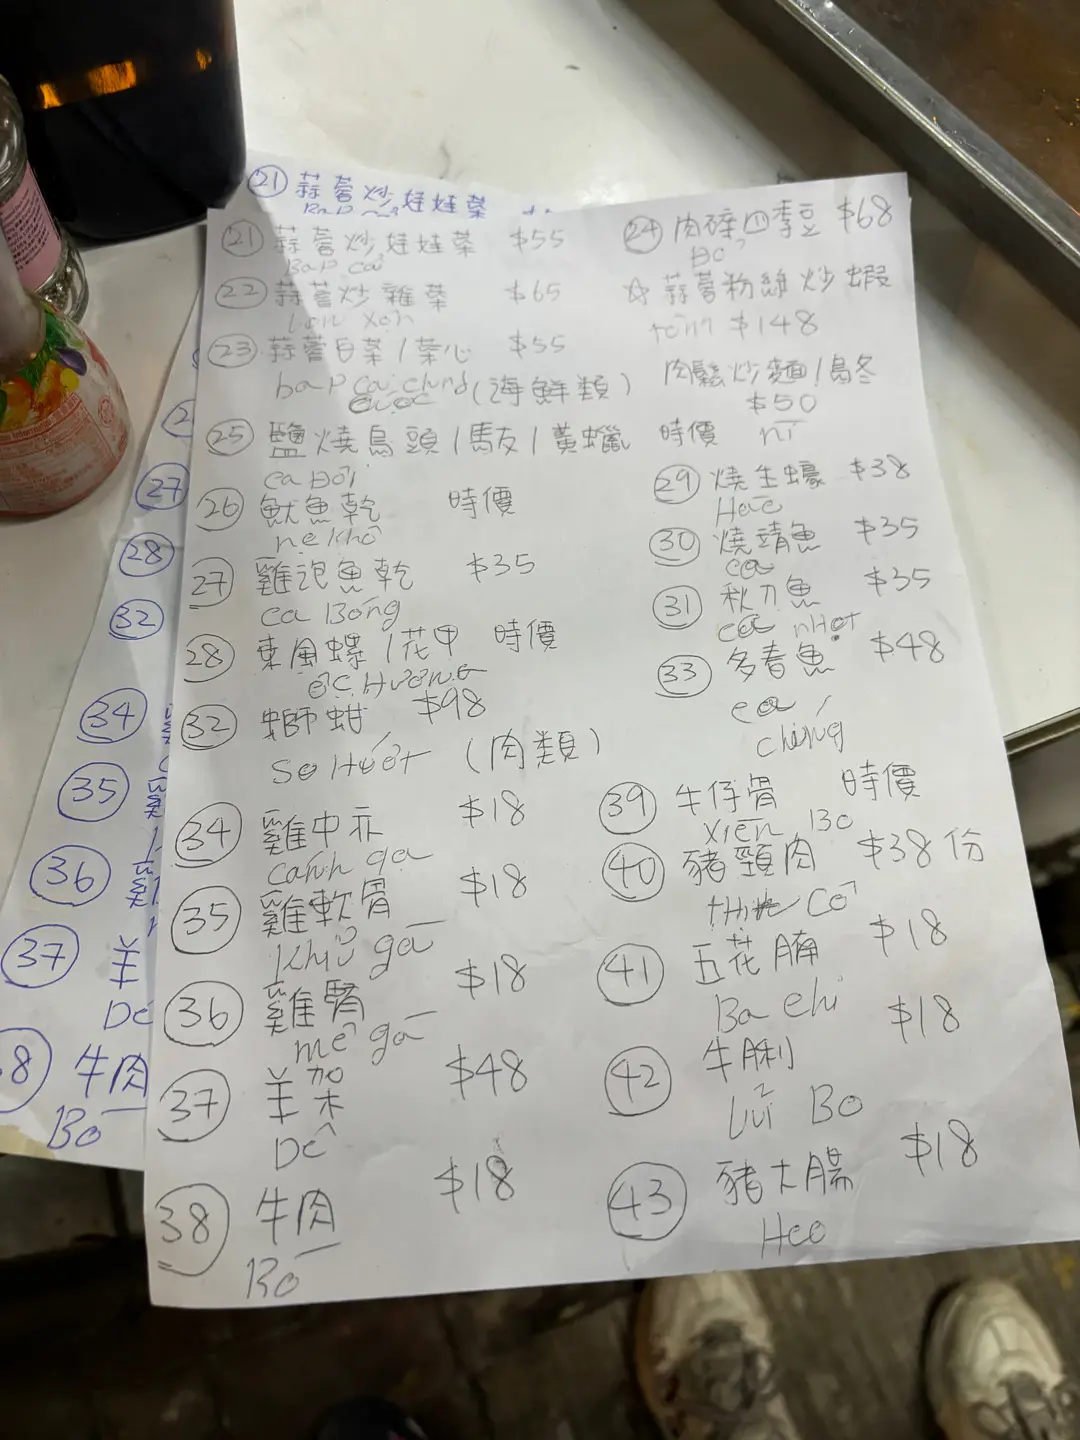 21 蒜蓉炒娃娃菜
21 蒜蓉炒娃娃菜 $55
Bap cai
22 蒜蓉炒雜菜 $65
xon
23 蒜蓉白菜/菜心 $55
bap cai
(海鮮類)
24 肉碎四季豆 $68
Bo
☆ 蒜蓉粉絲炒蝦
tôm $148
肉鬆炒麵/烏冬
$50
mì
25 鹽燒烏頭/馬友/黃蠟 時價
ca Đôi
26 魷魚乾 時價
me khô
27 雞泡魚乾 $35
ca Bóng
28 東風螺/花甲 時價
ốc Hương
32 螄蚶 $98
so Huốt
29 燒生蠔 $38
Hào
30 燒鯖魚 $35
ca
31 秋刀魚 $35
ca nhot
33 多春魚 $48
ca
chứng
(肉類)
34 雞中亦 $18
canh ga
35 雞軟骨 $18
Khủ gà
36 雞腎 $18
mê gà
37 羊架 $48
Dê
38 牛肉 $18
Bo
39 牛仔骨 時價
xiên Bo
40 豬頸肉 $38份
Cổ
41 五花腩 $18
Ba chi
42 牛脷 $18
Lũi Bo
43 豬大腸 $18
Heo
27
28
32
34
35
36
37 羊
Dê
8 牛肉
Bo